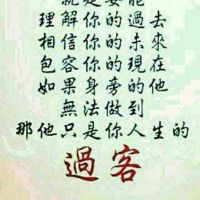 就是要能
理解你的過去
相信你的未來
包容你的現在
如果身旁的他
無法做到
那他只是你人生的
過客